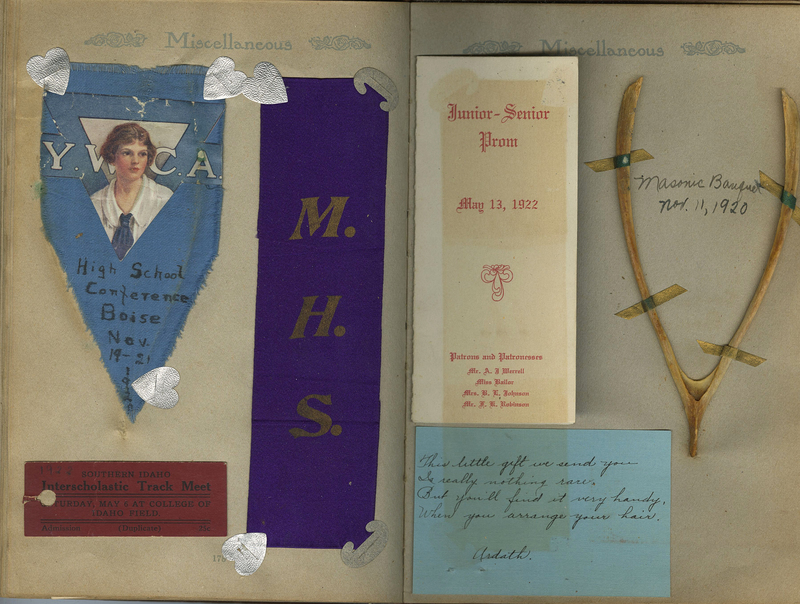 Miscellaneous
Y.W.C.A.
High School
Conference
Boise
Nov.
19-21
M.
H.
S.
SOUTHERN IDAHO
Interscholastic Track Meet
SATURDAY, MAY AT COLLEGE OF
IDAHO FIELD.
Admission (Duplicate) 25c
Miscellaneous
Junior-Senior
Prom
May 13, 1922
Patrons and Patronesses
Mr. A. J Worrell
Miss
Mrs. B. L. Johnson
Mr. F. R. Robinson
Masonic Banquet
Nov. 11, 1920
This little gift we send you
Is really nothing rare.
But you'll find it very handy,
When you arrange your hair.
Ardath.